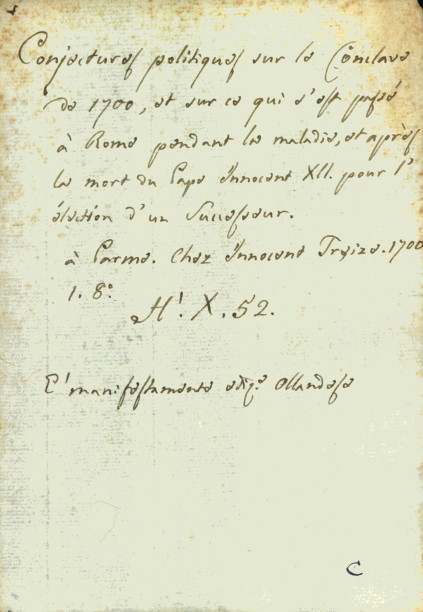 Conjectures politiques sur le Conclave
de 1700, et sur ce qui s'est passé
à Rome pendant la maladie, et après
la mort du Pape Innocent XII. pour l'
élection d'un Successeur.
à Parme. Chez Innocent Treize. 1700
1. 8°
H'. X. 52.
E' manifestamente ediz.e Ollandese
C